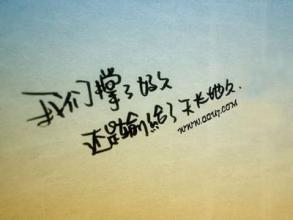 我们撑了好久
还是输给了天长地久.
www.QQU7.COM